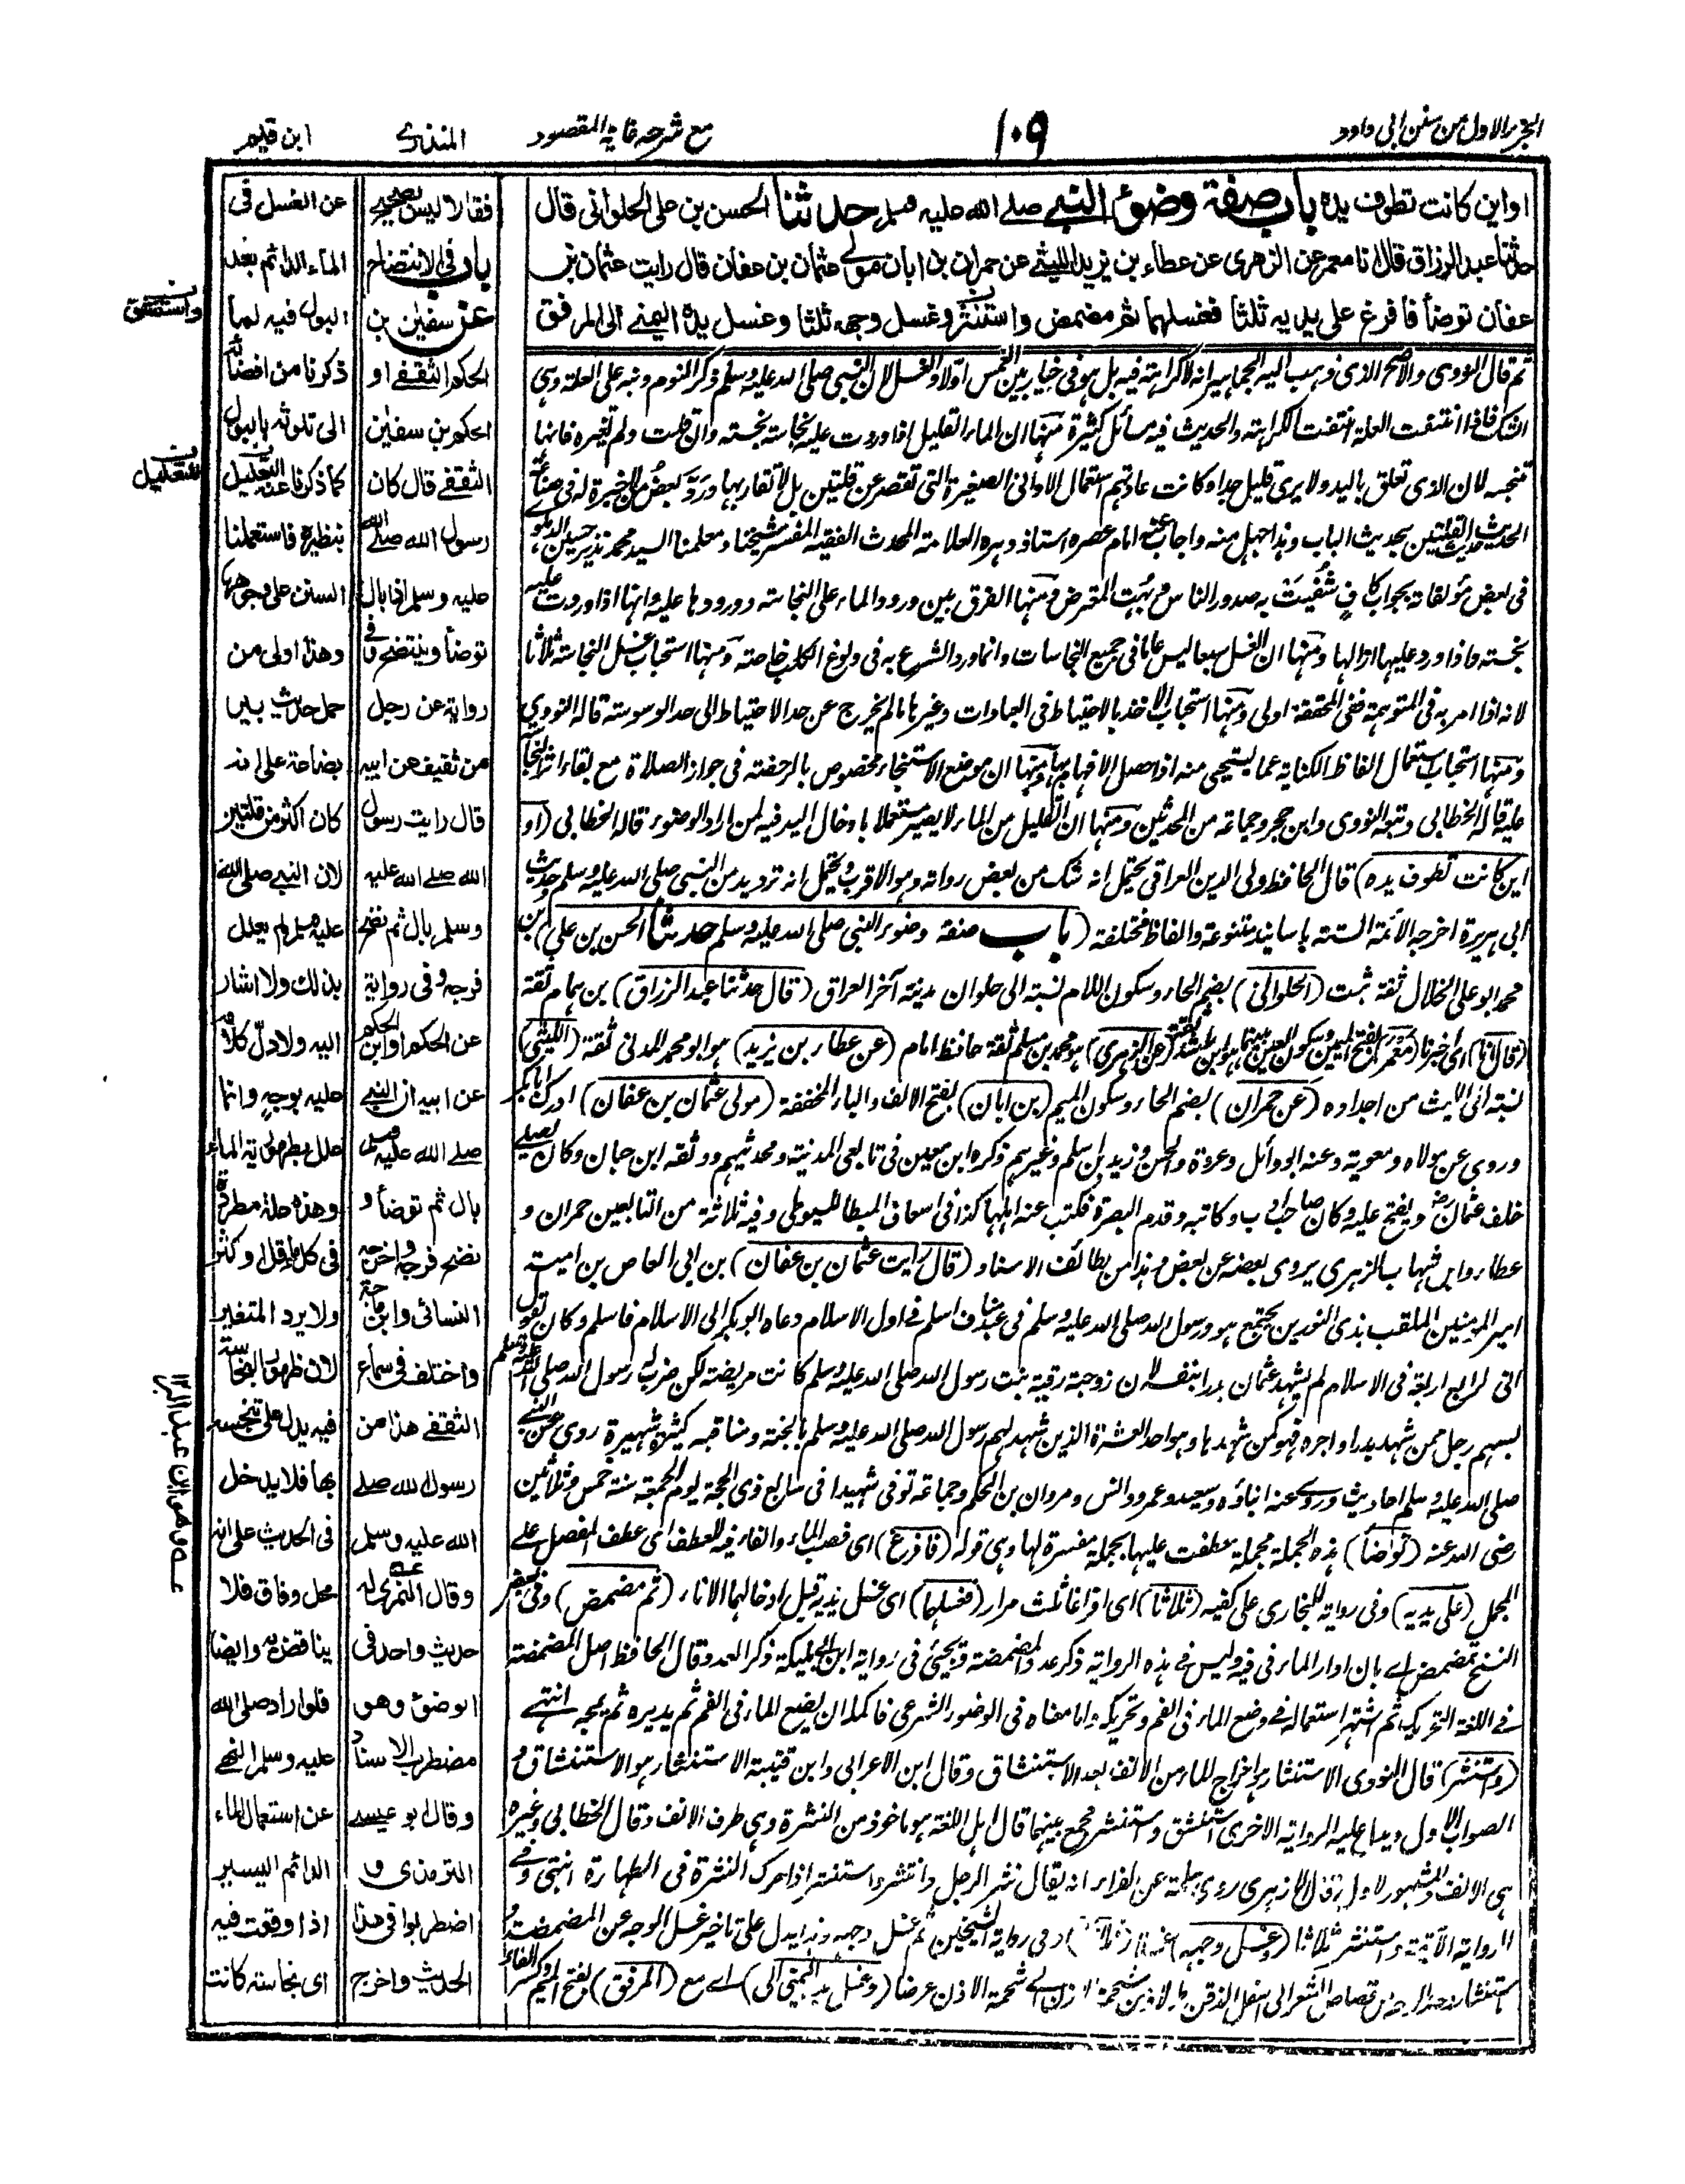 الجزء الاول من سنن ابى داود
١٠٩
مع شرحه غاية المقصود
المنذرى
ابن قيم
او اين كانت تطوف يده باب صفة وضوء النبي صلے الله عليه وسلم حدثنا الحسن بن على الحلوانى قال
حدثنا عبد الرزاق قال انا معمر عن الزهرى عن عطاء بن يزيد الليثے عن حمران بن ابان مولى عثمان بن عفان قال رايت عثمان بن
عفان توضأ فأفرغ على يديه ثلثا فغسلهما ثم مضمض واستنثر وغسل وجهه ثلثا وغسل يده اليمنے الى المرفق
ثم قال النووى والاصح الذى ذهب اليه الجماهير انه لا كراهة فيه بل هو فى خيار بين الغمس اولا والغسل لان النبى صلى الله عليه وسلم ذكر النوم ونبه على العلة وهى
الشك فاذا انتفت العلة انتفت الكراهة والحديث فيه مسائل كثيرة منها ان الماء القليل اذا وردت عليه نجاسة نجسته وان قلت ولم تغيره فانها
تنجسه لان الذى تعلق باليد ولا يرى قليل جدا وكانت عادتهم استعمال الاوانى الصغيرة التى تقصر عن قلتين بل لا تقاربها ورد بعض من لا خبرة له فى
الحديث حديث القلتين بحديث الباب وهذا جهل منه واجاب عنه امام عصره استاذ دهره العلامة المحدث الفقيه المفسر شيخنا ومعلمنا السيد محمد نذير حسين الدهلوى
فى بعض مؤلفاته بجواب كاف شفيت به صدور الناس وبهت المعترض ومنها الفرق بين ورود الماء على النجاسة وورودها عليه وانها اذا وردت عليه
نجسته واذا ورد عليها ازالها ومنها ان الغسل سبعا ليس عاما فى جميع النجاسات وانما ورد الشرع به فى ولوغ الكلب خاصة ومنها استحباب غسل النجاسة ثلاثا
لانه اذا امر به فى المتوهمة ففى المحققة اولى ومنها استحباب الاخذ بالاحتياط فى العبادات وغيرها مالم يخرج عن حد الاحتياط الى حد الوسوسة قاله النووي
ومنها استحباب استعمال الفاظ الكناية عما يستحيى منه اذا حصل الافهام بها ومنها ان موضع الاستنجاء مخصوص بالرخصة فى جواز الصلاة مع بقاء اثر النجاسة
عليه قاله الخطابى وتبعه النووى وابن حجر وجماعة من المحدثين ومنها ان القليل من الماء لا يصير مستعملا بادخال اليد فيه لمن اراد الوضوء قاله الخطابى (او
اين كانت تطوف يده) قال الحافظ ولى الدين العراقى يحتمل انه شك من بعض رواته وهو الاقرب ويحتمل انه ترديد من النبى صلى الله عليه وسلم وحديث
ابى هريرة اخرجه الائمة الستة باسانيد متنوعة والفاظ مختلفة (باب صفة وضوء النبى صلى الله عليه وسلم حدثنا الحسن بن على) بن
محمد ابو على الخلال ثقة ثبت (الحلوانى) بضم الحاء وسكون اللام نسبة الى حلوان مدينة آخر العراق (قال حدثنا عبد الرزاق) بن همام ثقة
(قال انا) اى اخبرنا (معمر) بفتح الميمين وسكون العين بينهما هو ابن راشد ثقة (عن الزهرى) هو محمد بن مسلم ثقة حافظ امام (عن عطاء بن يزيد) هو ابو محمد المدنى ثقة (الليثى)
نسبة الى الليث من اجداده (عن حمران) بضم الحاء وسكون الميم (بن ابان) بفتح الالف والباء المخففة (مولى عثمان بن عفان) ادرك ابا بكر
وروى عن مولاه ومعوية وعنه ابو وائل وعروة والحسن وزيد بن اسلم وغيرهم ذكره ابن معين فى تابعى المدينة ومحدثيهم ووثقه ابن حبان وكان يصلے
خلف عثمان رض ويفتح عليه وكان صاحب وكاتبه وقدم البصرة فكتب عنه اهلها كذا فى اسعاف المبطا للسيوطى وفيه ثلاثة من التابعين حمران و
عطاء وابن شهاب الزهرى يروى بعضه عن بعض وهذا من لطائف الاسناد (قال رايت عثمان بن عفان) بن ابى العاص بن امية
امير المومنين الملقب بذى النورين يجتمع هو ورسول الله صلى الله عليه وسلم فى عبد مناف اسلم فى اول الاسلام دعاه ابو بكر الى الاسلام فاسلم وكان يقول
انى لرابع اربعة فى الاسلام لم يشهد عثمان بدرا بنفسه لان زوجته رقية بنت رسول الله صلى الله عليه وسلم كانت مريضة لكن ضرب له رسول الله صلى الله عليه وسلم
بسهم رجل ممن شهد بدرا واجره فهو كمن شهدها وهو احد العشرة الذين شهد لهم رسول الله صلى الله عليه وسلم بالجنة ومناقبه كثيرة شهيرة روى عن النبے
صلى الله عليه وسلم احاديث وروى عنه ابناؤه وسعيد وعمرو وانس ومروان بن الحكم وجماعة توفى شهيدا فى سابع ذى الحجة يوم الجمعة سنة خمس وثلاثين
رضى الله عنه (توضأ) هذه الجملة مجملة عطفت عليها بجملة مفسرة لها وهى قوله (فافرغ) اى فصب الماء والفاء فيه للعطف اى عطف المفصل على
المجمل (على يديه) وفى رواية للبخارى على كفيه (ثلاثا) اى افراغا ثلث مرار (فغسلهما) اى غسل يديه قبل ادخالهما الاناء (ثم مضمض) وفى بعض
النسخ تمضمض اے بان ادار الماء فى فيه وليس فى هذه الرواية ذكر عدد المضمضة ويجئ فى رواية ابن ابى مليكة ذكر العدد وقال الحافظ اصل المضمضة
فى اللغة التحريك ثم اشتهر استعماله فى وضع الماء فى الفم وتحريكه واما معناه فى الوضوء الشرعى فاكمله ان يضع الماء فى الفم ثم يديره ثم يمجه انتهے
(واستنثر) قال النووى الاستنثار هو اخراج الماء من الانف بعد الاستنشاق وقال ابن الاعرابى وابن قتيبة الاستنثار هو الاستنشاق و
الصواب الاول ويدل عليه الرواية الاخرى استنشق واستنثر فجمع بينهما قال اهل اللغة هو ماخوذ من النثرة وهى طرف الانف وقال الخطابى وغيره
هى الانف والمشهور الاول قال الازهرى روى سلمة عن الفراء انه يقال نثر الرجل وانتثر واستنثر اذا حرك النثرة فى الطهارة انتهى وفى
الرواية الآتية واستنثر ثلاثا (وغسل وجهه ثلاثا) وفى رواية الشيخين ثم غسل وجهه وهذا يدل على تاخير غسل الوجه عن المضمضة و
الاستنثار وحد الوجه من قصاص الشعر الى اسفل الذقن طولا ومن شحمة الاذن الى شحمة الاذن عرضا (وغسل يده اليمنى الى) اے مع (المرفق) بفتح الميم وكسر الفاء
فقالا ليس بصحيح
باب فى الانتضاح
عن سفين بن
الحكم الثقفے او
الحكم بن سفين
الثقفے قال كان
رسول الله صلے الله
عليه وسلم اذا بال
توضأ وينتضح و فى
رواية عن رجل
من ثقيف عن ابيه
قال رايت رسول
الله صلے الله عليه
وسلم بال ثم نضح
فرجه وفى رواية
عن الحكم او ابن الحكم
عن ابيه ان النبے
صلے الله عليه وسلم
بال ثم توضأ و
نضح فرجه واخرجه
النسائى وابن ماجة
واختلف فى سماع
الثقفے هذا من
رسول الله صلے
الله عليه وسلم
وقال النمرى له
حديث واحد فى
الوضوء وهو
مضطرب الاسناد
وقال ابو عيسے
الترمذى و
اضطربوا فى هذا
الحديث واخرج
عن الغسل فى
الماء الدائم بعد
البول فيه لما
ذكرنا من افضائه
الى تلوثه بالبول
كما ذكرنا عنه التعليل
بنظيره فاستعملنا
السنن على وجوهها
وهذا اولى من
حمل حديث بير
بضاعة على انه
كان اكثر من قلتين
لان النبے صلى الله
عليه وسلم لم يعلل
بذلك ولا اشار
اليه ولا دل كلامه
عليه بوجه وانما
علل بطهورية الماء
وهذه علة مطردة
فى كل ماء قل او كثر
ولا يرد المتغير
لان ظهور النجاسة
فيه يدل على تنجسه
بها فلا يدخل
فى الحديث على انه
محل وفاق فلا
يناقض به وايضا
فلو اراد صلى الله
عليه وسلم النهے
عن استعمال الماء
الدائم اليسير
اذا وقعت فيه
اى نجاسة كانت
واستنشق
للتعليل
عه وهو ابن عبد البر ١٢